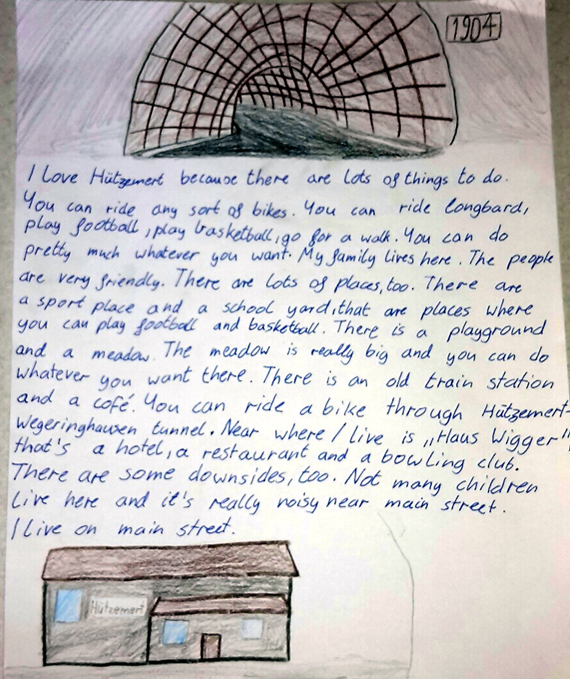 1904
I love Hützemert because there are lots of things to do.
You can ride any sort of bikes. You can ride longbard,
play football, play basketball, go for a walk. You can do
pretty much whatever you want. My family lives here. The people
are very friendly. There are lots of places, too. There are
a sport place and a school yard, that are places where
you can play football and basketball. There is a playground
and a meadow. The meadow is really big and you can do
whatever you want there. There is an old train station
and a café. You can ride a bike through Hützemert-
Wegeringhausen tunnel. Near where I live is „Haus Wigger",
that's a hotel, a restaurant and a bowling club.
There are some downsides, too. Not many children
live here and it's really noisy near main street.
I live on main street.
Hützemert